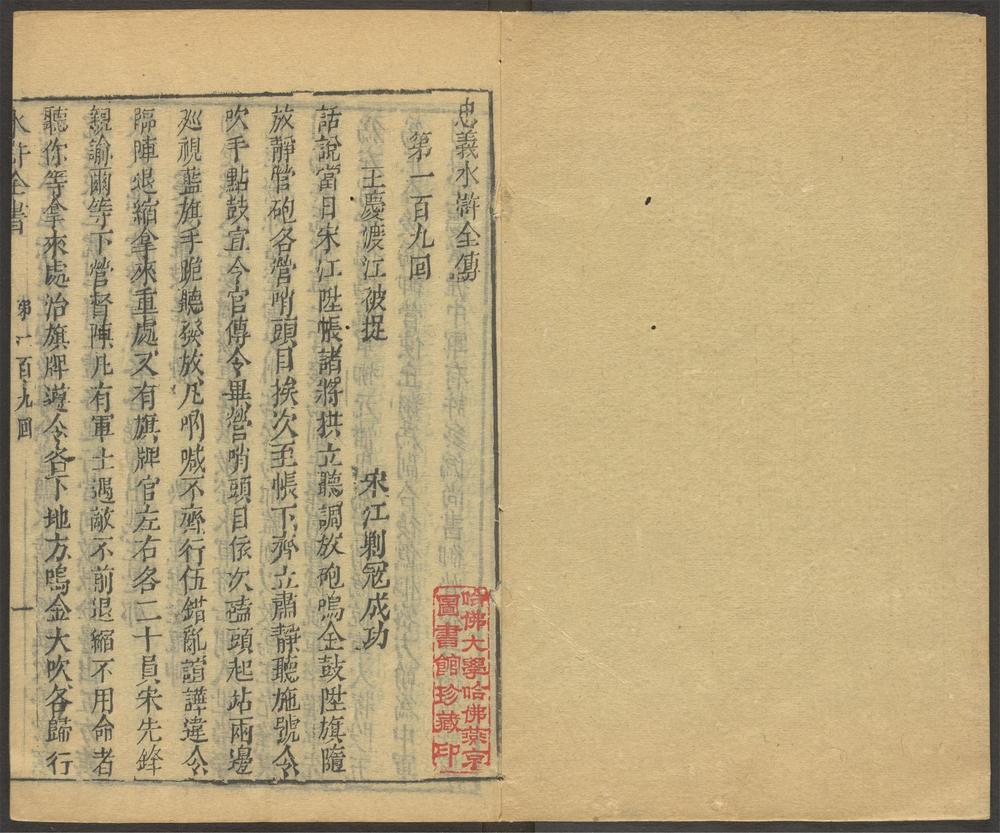 忠義水滸全傳
第一百九回
王慶渡江被捉 宋江剿寇成功
話說當日宋江陞帳諸將拱立聽調放砲鳴金鼓陞旗隨
放靜營砲各營哨頭目挨次至帳下齊立肅靜聽施號令
吹手點鼓宣令官傳令畢營哨頭目依次磕頭起站兩邊
巡視藍旗手跪聽發放凡吶喊不齊行伍錯亂諠譁違令
臨陣退縮拿來重處又有旗牌官左右各二十員宋先鋒
親諭爾等下營督陣凡有軍士遇敵不前退縮不用命者
聽你等拿來處治旗牌遵令各下地方鳴金大吹各歸行
水滸全書 第一百九回 一
哈佛大學哈佛燕京
圖書館珍藏印